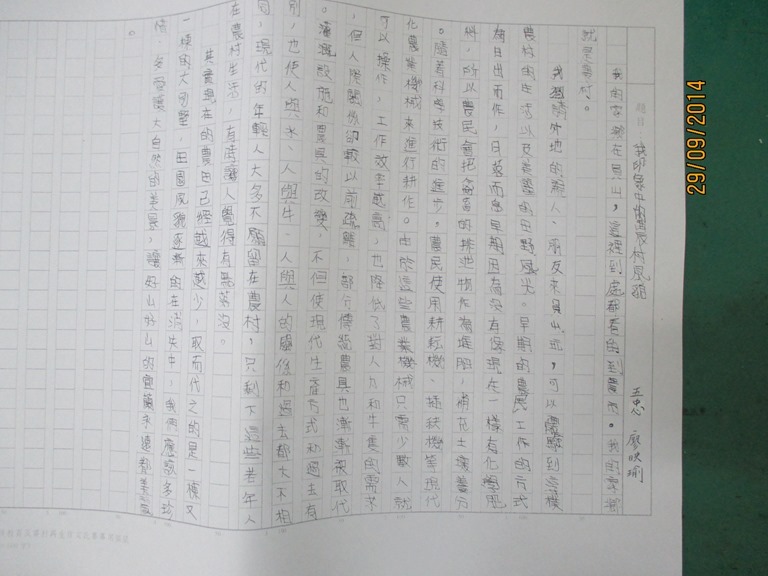 題目：我印象中的農村風貌
五忠 廖映瑜
我的家鄉在員山，這裡到處都看的到農田。我的家鄉
就是農村。
我邀請外地的親人、朋友來員山玩，可以體驗到
農村的生活以及美麗的田野風光。早期的農民工作的方式
日出而作，日落而息早期因為沒有像現在一樣有化學肥
料，所以農民會把家畜的排泄物作為堆肥，補充土壤養分
。隨著科學技術的進步，農民使用耕耘機、插秧機等現代
化農業機械來進行耕作。由於這些農業機械只需少數人就
可以操作，工作效率越高，也降低了對人力和牛隻的需求
，但人際關係卻較以前疏離，部分傳統農具也漸漸被取代
。灌溉設施和農具的改變，不但使現代生產方式和過去有
別，也使人與水、人與牛、人與人的關係和過去都大不相
同，現代的年輕人大多不願留在農村，只剩下這些老年人
在農村生活，有時讓人覺得有點落沒。
其實現在的農田已經越來越少，取而代之的是一棟又
一棟的大別墅，田園風貌逐漸的在消失中，我們應該多珍
惜、多愛護大自然的美景，讓好山好水的員山永遠
。
29/09/2014